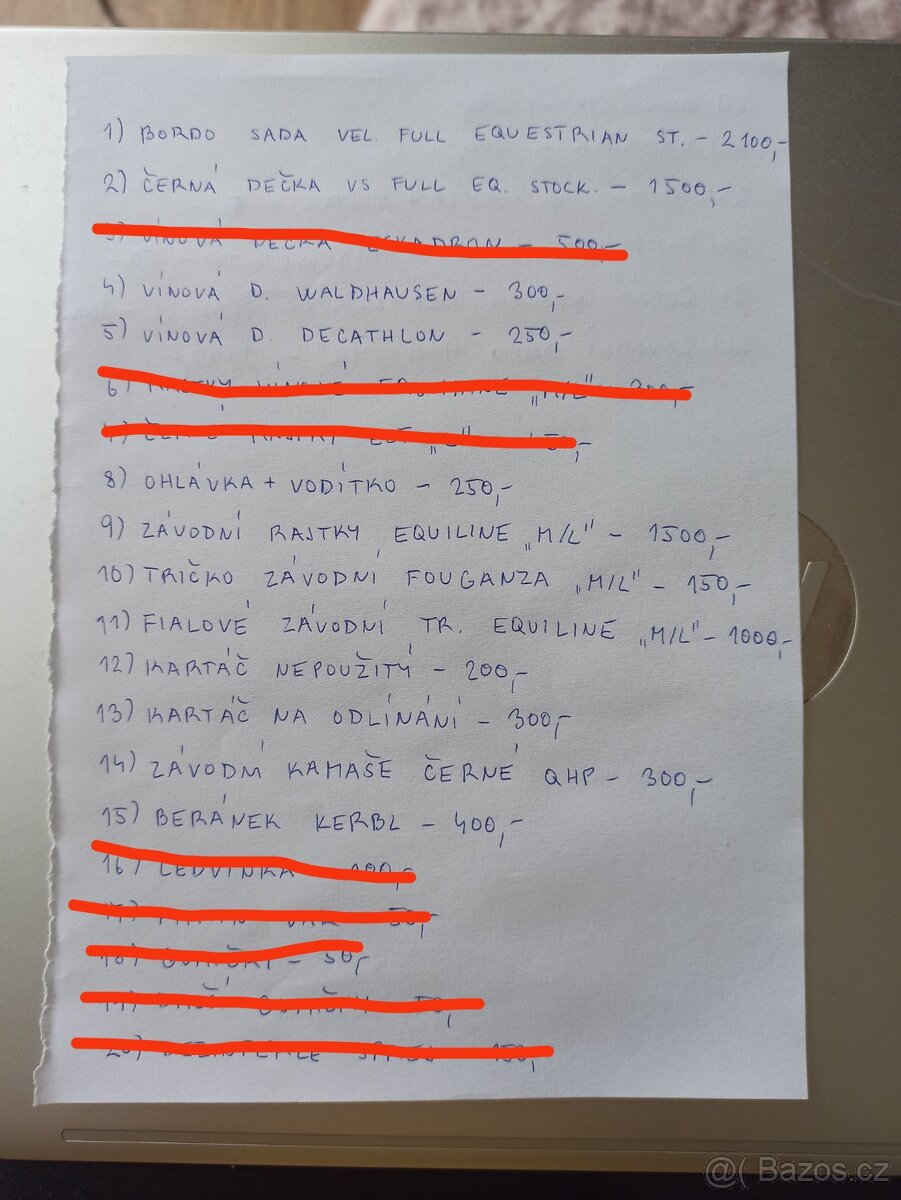 1) BORDO SADA VEL. FULL EQUESTRIAN ST. - 2100,-
2) ČERNÁ DEČKA VS FULL EQ. STOCK. - 1500,-
3) VÍNOVÁ DEČKA ESKADRON - 500,-
4) VÍNOVÁ D. WALDHAUSEN - 300,-
5) VÍNOVÁ D DECATHLON - 250,-
6) VÍNOVÉ "M/L"
7) "L"
8) OHLÁVKA + VODÍTKO - 250,-
9) ZÁVODNÍ RAJTKY EQUILINE „M/L" - 1500,-
10) TRIČKO ZÁVODNÍ FOUGANZA „M/L" - 150,-
11) FIALOVÉ ZÁVODNÍ TR. EQUILINE „M/L" - 1000,-
12) KARTÁČ NEPOUŽITÝ - 200,-
13) KARTÁČ NA ODLÍNÁNÍ - 300,-
14) ZÁVODNÍ KAMAŠE ČERNÉ QHP - 300,-
15) BERÁNEK KERBL - 400,-
16) LEDVINKA
50,-
18) - 50,-
50,-
20)
@( Bazos.cz